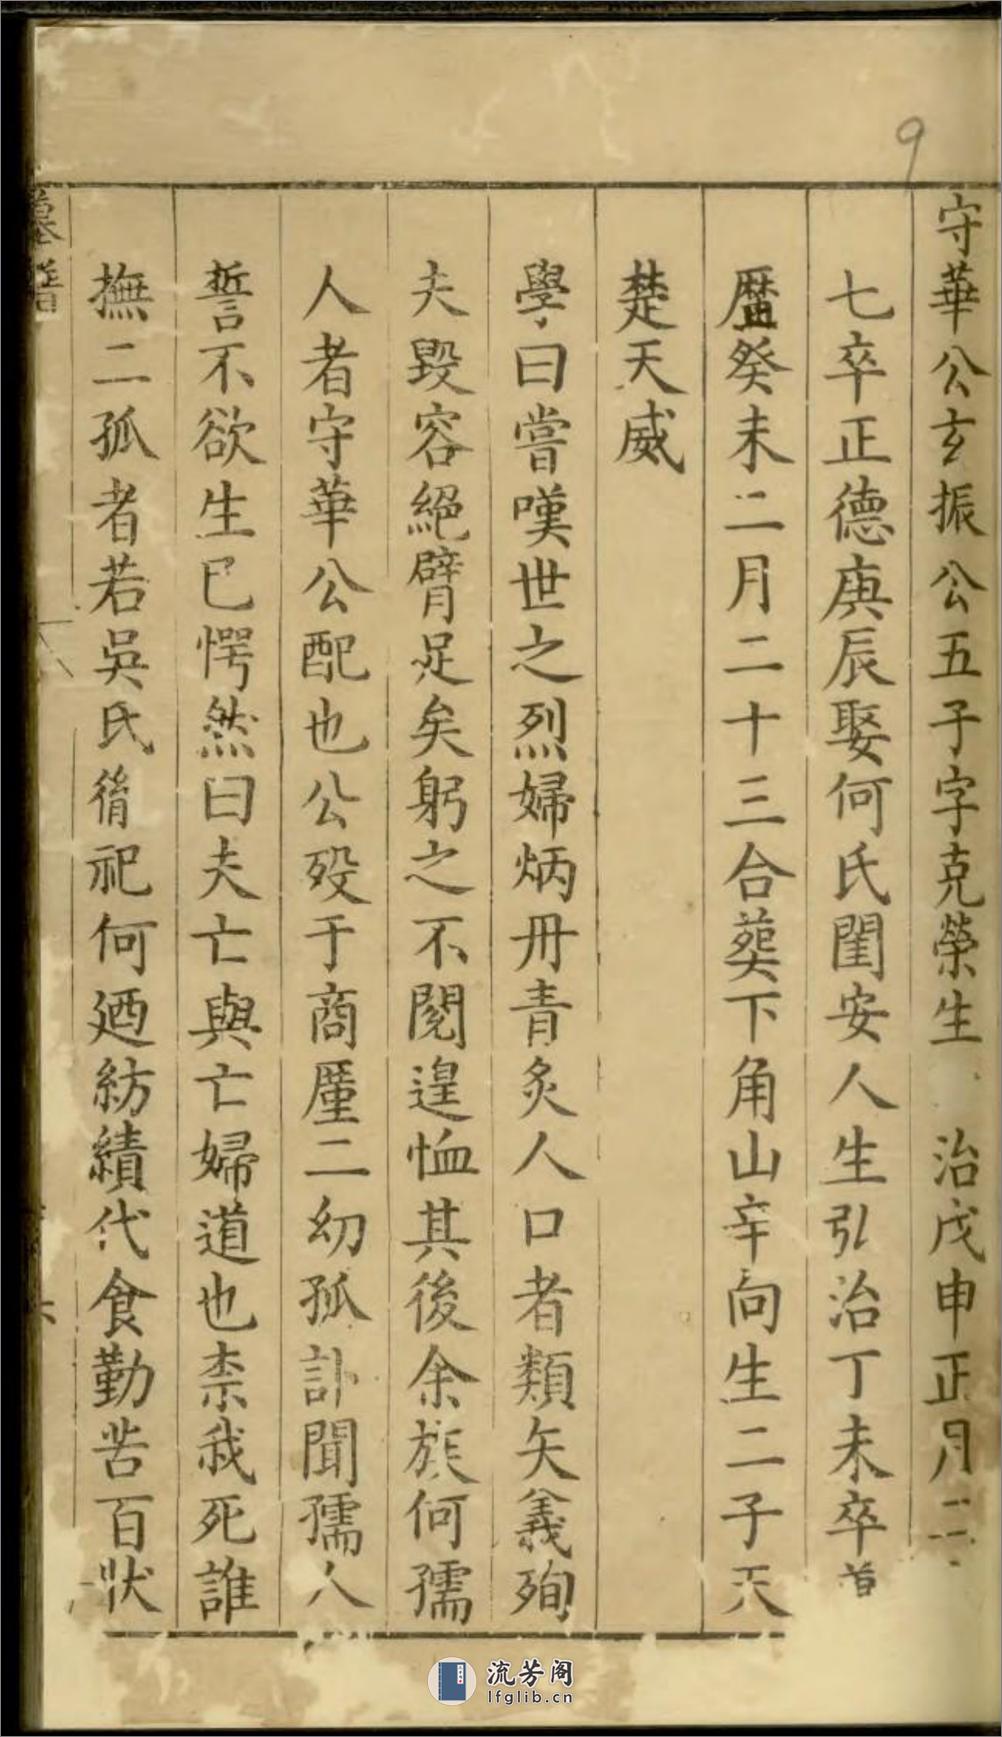 9
守華公玄振公五子字克榮生 治戊申正月二
七卒正德庚辰娶何氏閨安人生弘治丁未卒
曆癸未二月二十三合葬下角山辛向生二子天
楚天威
學曰嘗嘆世之烈婦炳丹青炙人口者類矢義殉
夫毀容絕臂足矣躬之不閱遑恤其後余族何孺
人者守華公配也公歿于商厪二幼孤訃聞孺人
誓不欲生已愕然曰夫亡與亡婦道也柰我死誰
撫二孤者若吳氏後祀何廼紡績代食勤苦百狀
墓譜
六
流芳阁
lfglib.cn